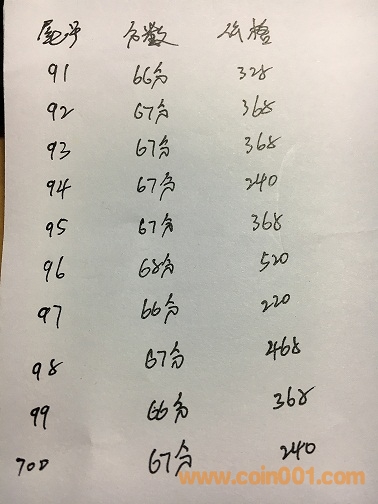 尾号 分数 价格
91 66分 328
92 67分 368
93 67分 368
94 67分 240
95 67分 368
96 68分 520
97 66分 220
98 67分 468
99 66分 368
700 67分 240
www.coin001.com